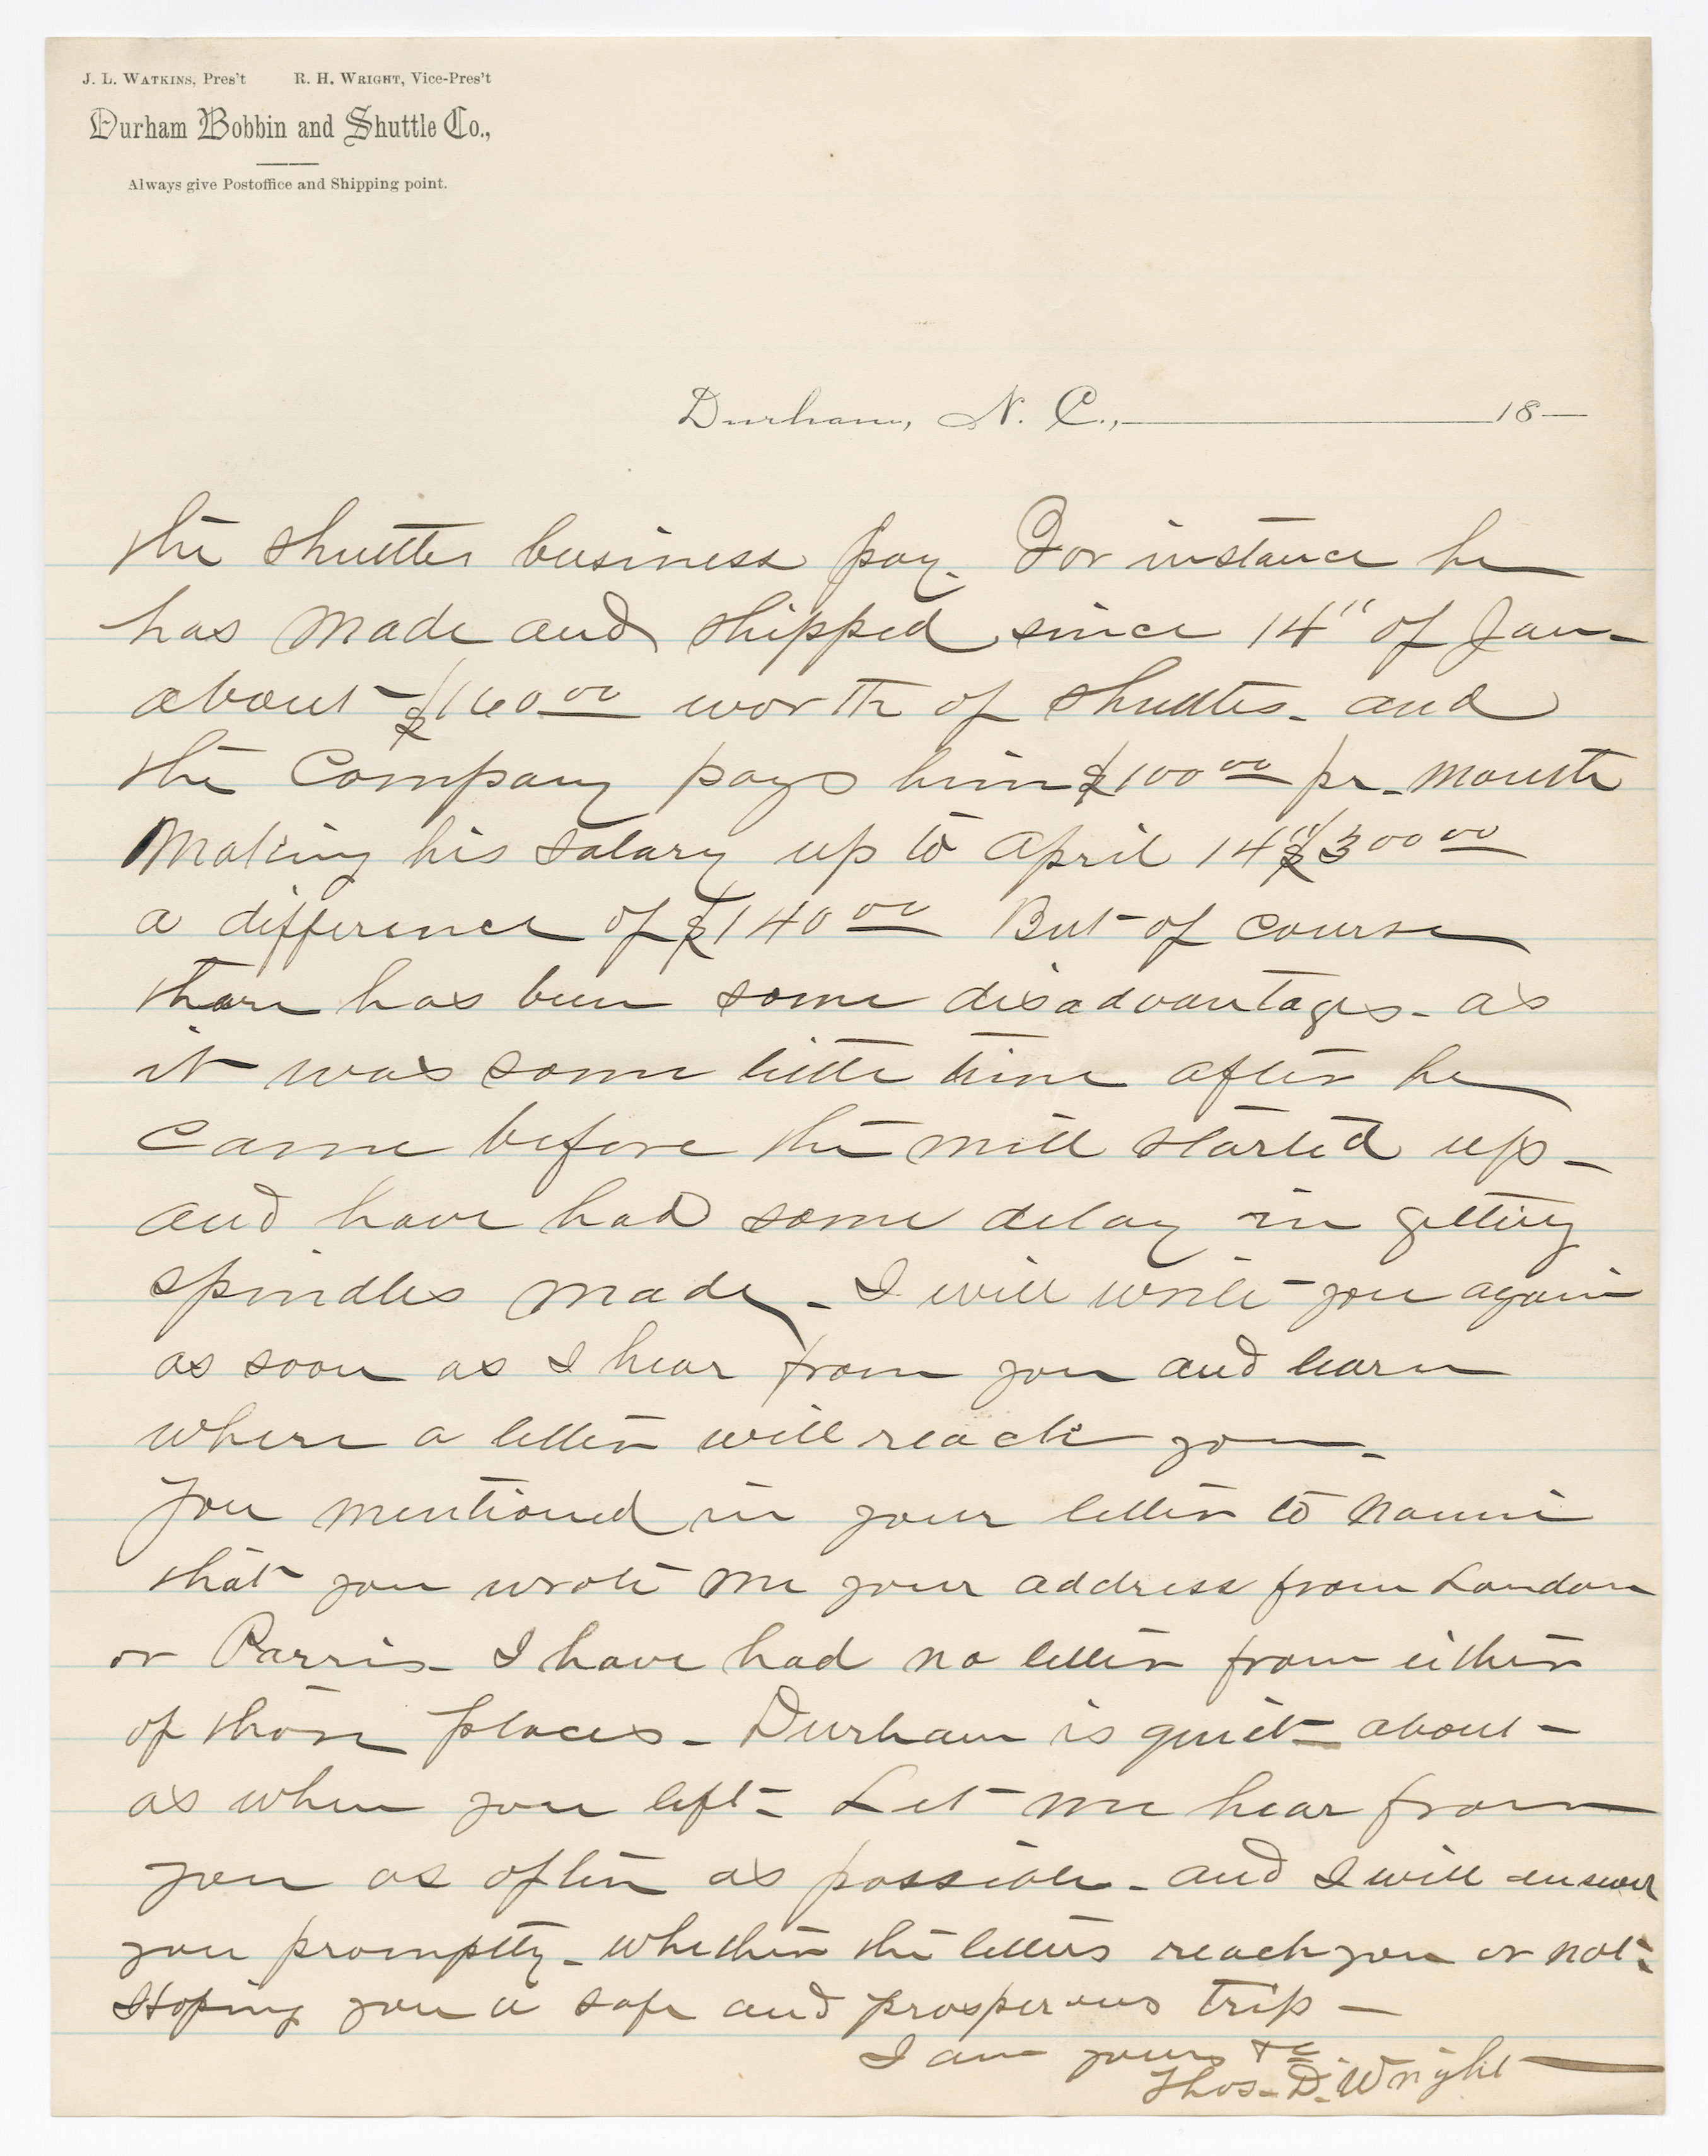 J. L. WATKINS, Pres't R. H. WRIGHT, Vice-Pres't
Durham Bobbin and Shuttle Co.,
Always give Postoffice and Shipping point.
Durham, N. C., 18
the shuttles business pay. For instance he
has made and shipped since 14" of Jan-
about $160 00 worth of shuttles- and
the Company pays him $100 00 pr. month
Making his salary up to April 14" $300 00
a difference of $140 00 But of course
thare has been some disadvantages- as
it was some little time after he
came before the mill started up-
and have had some delay in getting
spindles made- I will write you again
as soon as I hear from you and learn
where a letter will reach you-
You mentioned in your letter to Nannie
that you wrote me your address from London
or Parris- I have had no letter from either
of those places- Durham is quiet- about-
as when you left- Let me hear from
you as often as possible- and I will answer
you promptly- whether the letters reach you or not-
Hoping you a safe and prosperous trip-
I am yours &c
Thos. D. Wright